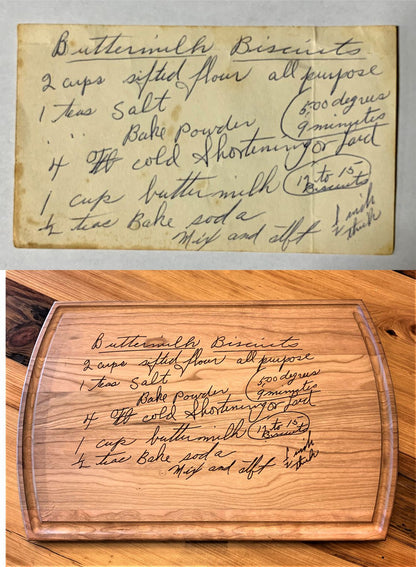 Buttermilk Biscuits
2 cups sifted flour all purpose
1 teas Salt
" " Bake Powder
500 degrees
9 minutes
4 cold Shortening or lard
1 cup buttermilk
12 to 15
Biscuits
½ teas Bake soda
Mix and
1 inch
thick
Buttermilk Biscuits
2 cups sifted flour all purpose
1 teas Salt
Bake Powder
500 degrees
9 minutes
4 cold Shortening or lard
1 cup buttermilk
12 to 15
Biscuits
½ teas Bake soda
Mix and
1 inch
thick